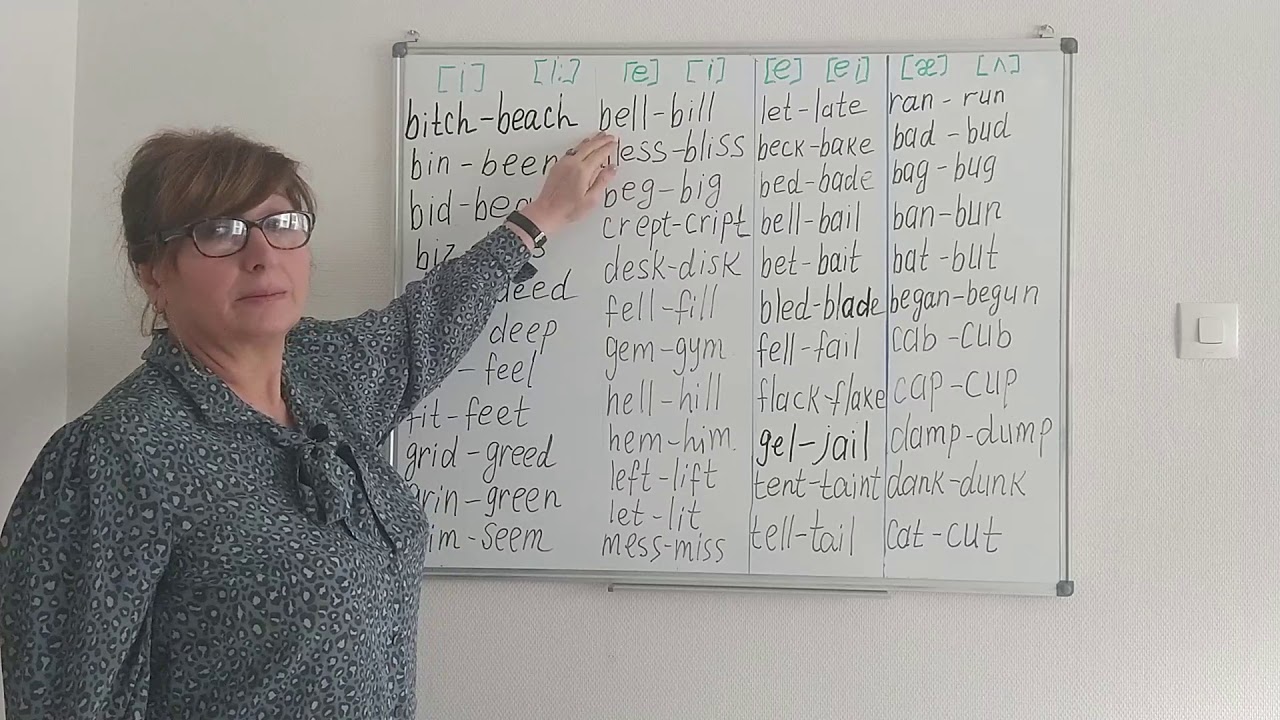 [i] [i:]
bitch-beach
bin-been
bid-
deed
deep
- feel
fit-feet
grid-greed
grin-green
-seem
[e] [i]
bell-bill
-bliss
beg-big
crept-cript
desk-disk
fell-fill
gem-gym
hell-hill
hem-him
left-lift
let-lit
mess-miss
[e] [ei]
let-late
beck-bake
bed-bade
bell-bail
bet-bait
bled-blade
fell-fail
flack-flake
gel-jail
tent-taint
tell-tail
[æ] [ʌ]
ran-run
bad-bud
bag-bug
ban-bun
bat-but
began-begun
cab-cub
cap-cup
damp-dump
dank-dunk
cat-cut